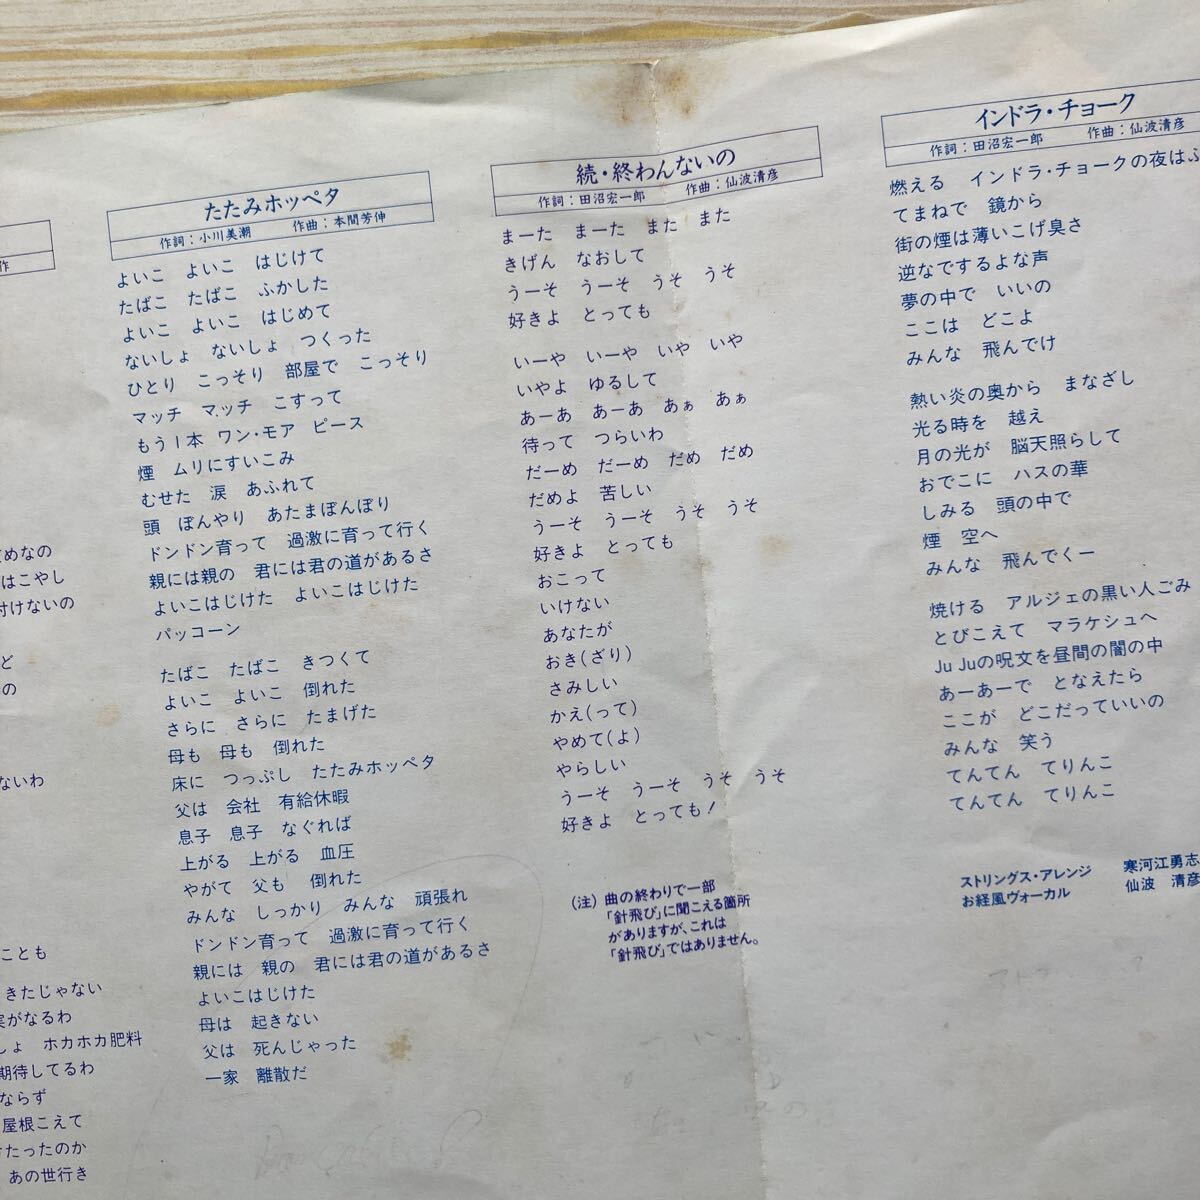 作
めなの
はこやし
付けないの
ど
の
ないわ
ことも
きたじゃない
実がなるわ
しょ　ホカホカ肥料
期待してるわ
ならず
屋根こえて
たったのか
あの世行き
たたみホッペタ
作詞：小川美潮　作曲：本間芳伸
よいこ　よいこ　はじけて
たばこ　たばこ　ふかした
よいこ　よいこ　はじめて
ないしょ　ないしょ　つくった
ひとり　こっそり　部屋で　こっそり
マッチ　マッチ　こすって
もう1本　ワン・モア　ピース
煙　ムリにすいこみ
むせた　涙　あふれて
頭　ぼんやり　あたまぼんぼり
ドンドン育って　過激に育って行く
親には親の　君には君の道があるさ
よいこはじけた　よいこはじけた
パッコーン
たばこ　たばこ　きつくて
よいこ　よいこ　倒れた
さらに　さらに　たまげた
母も　母も　倒れた
床に　つっぷし　たたみホッペタ
父は　会社　有給休暇
息子　息子　なぐれば
上がる　上がる　血圧
やがて　父も　倒れた
みんな　しっかり　みんな　頑張れ
ドンドン育って　過激に育って行く
親には　親の　君には君の道があるさ
よいこはじけた
母は　起きない
父は　死んじゃった
一家　離散だ
続・終わんないの
作詞：田沼宏一郎　作曲：仙波清彦
まーた　まーた　また　また
きげん　なおして
うーそ　うーそ　うそ　うそ
好きよ　とっても
いーや　いーや　いや　いや
いやよ　ゆるして
あーあ　あーあ　あぁ　あぁ
待って　つらいわ
だーめ　だーめ　だめ　だめ
だめよ　苦しい
うーそ　うーそ　うそ　うそ
好きよ　とっても
おこって
いけない
あなたが
おき(ざり)
さみしい
かえ(って)
やめて(よ)
やらしい
うーそ　うーそ　うそ　うそ
好きよ　とっても！
(注)　曲の終わりで一部
「針飛び」に聞こえる箇所
がありますが、これは
「針飛び」ではありません。
インドラ・チョーク
作詞：田沼宏一郎　作曲：仙波清彦
燃える　インドラ・チョークの夜はふ
てまねで　鏡から
街の煙は薄いこげ臭さ
逆なでするよな声
夢の中で　いいの
ここは　どこよ
みんな　飛んでけ
熱い炎の奥から　まなざし
光る時を　越え
月の光が　脳天照らして
おでこに　ハスの華
しみる　頭の中で
煙　空へ
みんな　飛んでくー
焼ける　アルジェの黒い人ごみ
とびこえて　マラケシュへ
Ju Juの呪文を昼間の闇の中
あーあーで　となえたら
ここが　どこだっていいの
みんな　笑う
てんてん　てりんこ
てんてん　てりんこ
ストリングス・アレンジ　寒河江勇志
お経風ヴォーカル　仙波　清彦